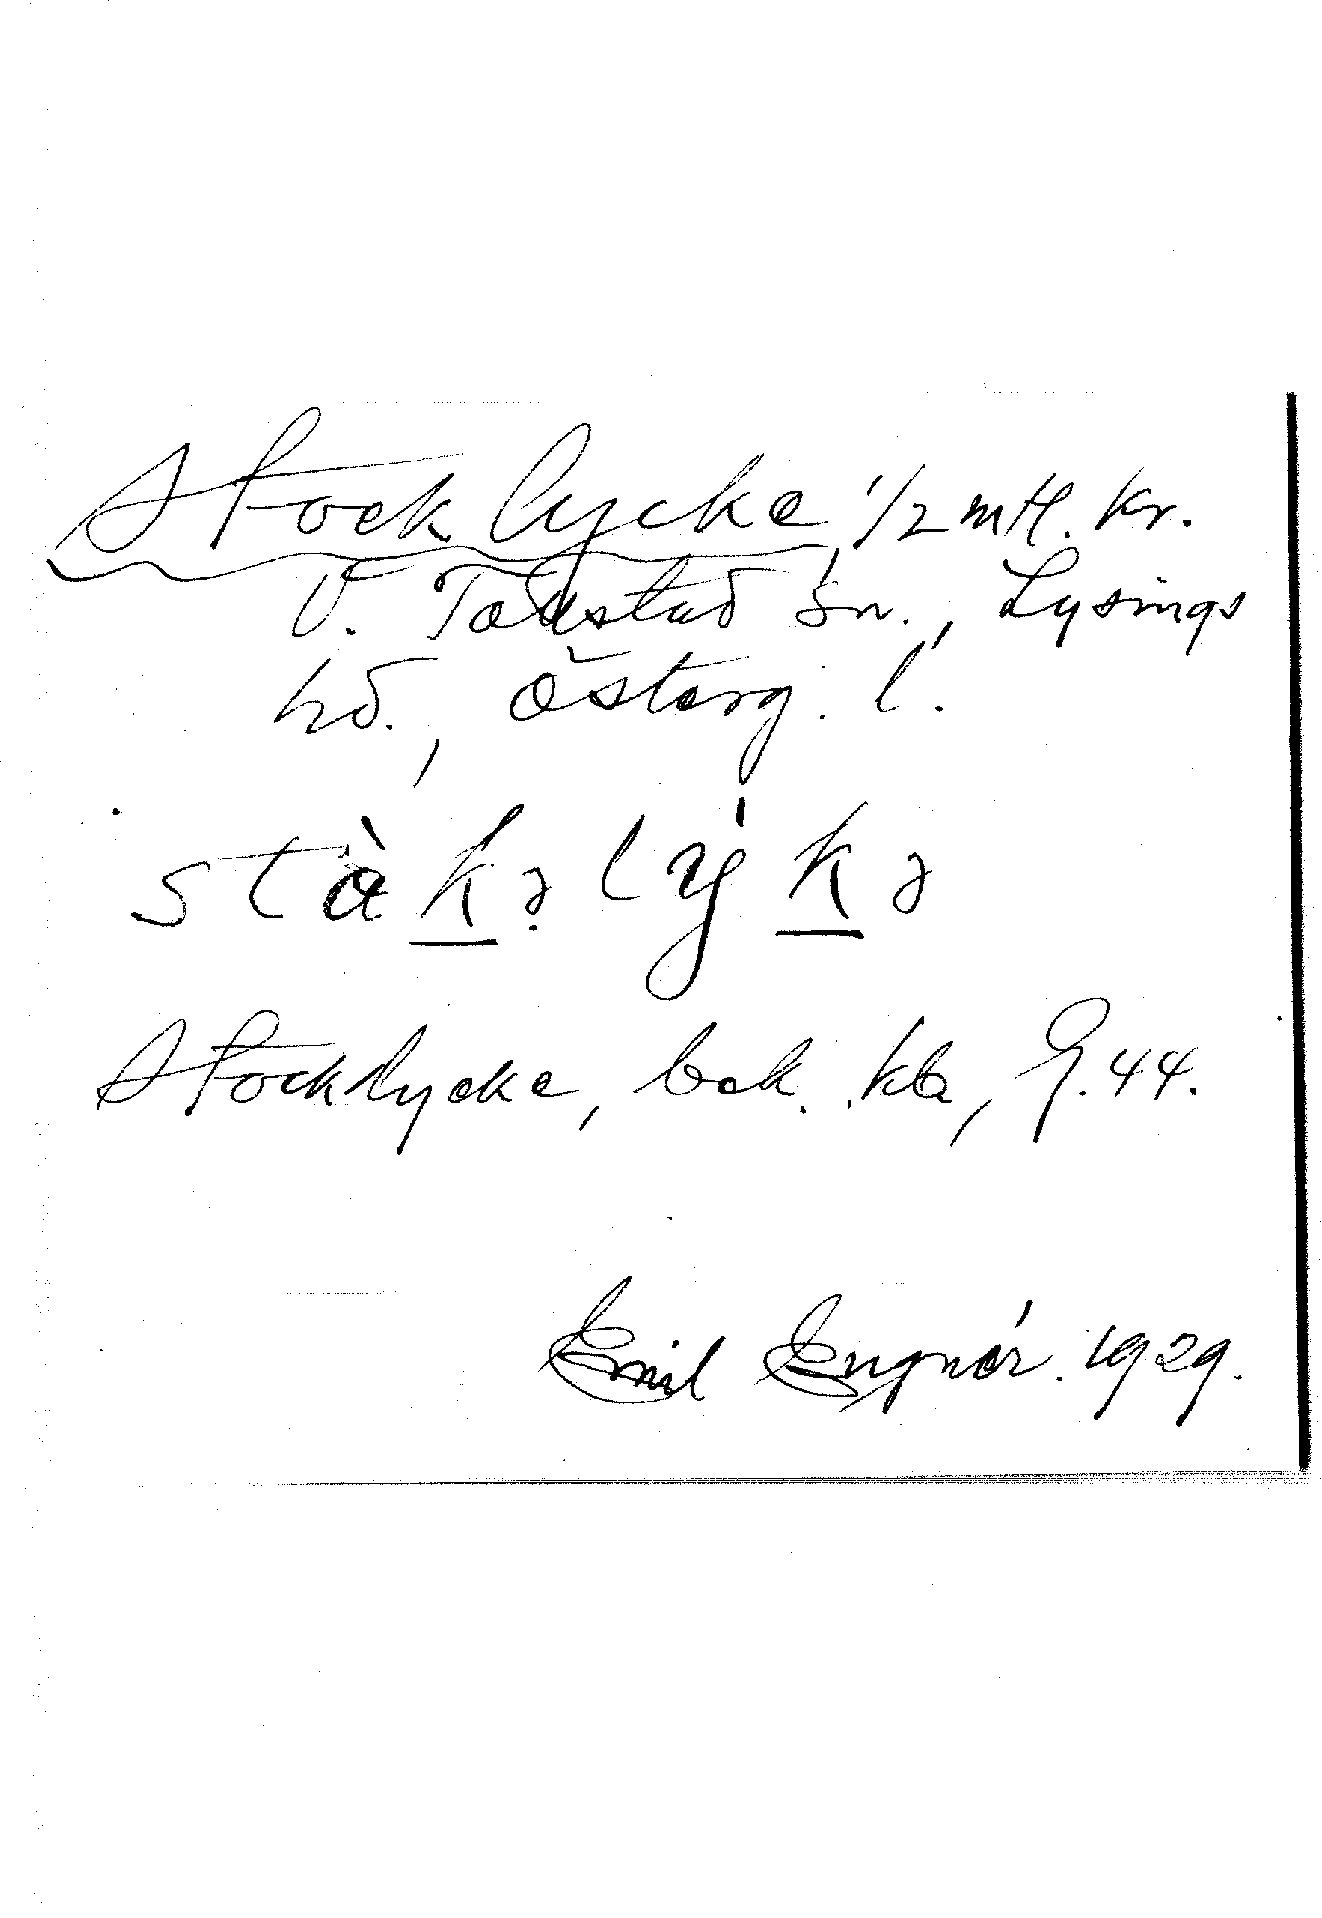 Stocklycke, 1/2 mtl. kr.
V. Tollstad sn., Lysings
hd., Österg. l.
stàkəlýkə
Stocklycke, bek. kb, G. 44.
Emil Engnér. 1929.